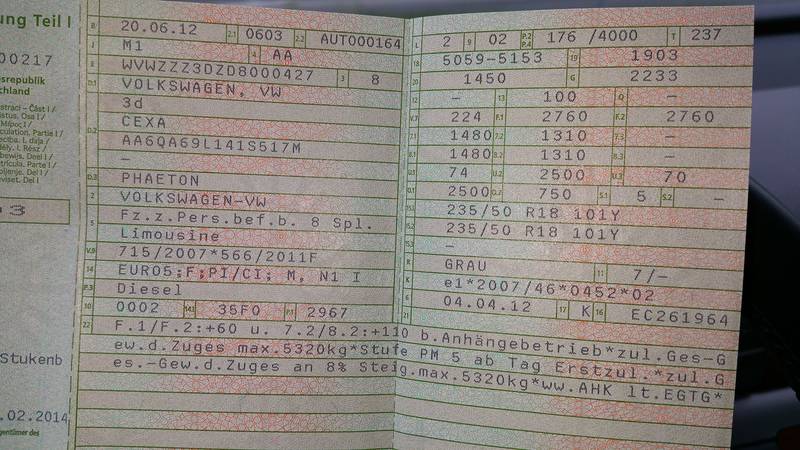 ung Teil I
00217
esrepublik
chland
straci – Část I /
istus, Osa I /
Мéрос I /
culation, Partie I /
, I. daļa /
dély, I. Rész /
bewijs, Deel I /
trícula, Parte I /
Del I
3
Stukenb
.02.2014
gentümer des
B 20.06.12 2.1 0603 2.2 AUT000164
J M1 4 AA
E WVWZZZ3DZD8000427 3 8
D.1 VOLKSWAGEN, VW
3d
D.2 CEXA
AA6QA69L141S517M
–
D.3 PHAETON
2 VOLKSWAGEN-VW
5 Fz.z.Pers.bef.b. 8 Spl.
Limousine
V.9 715/2007*566/2011F
14 EURO5;F;PI/CI; M, N1 I
P.3 Diesel
10 0002 14.1 35F0 P.1 2967
L 2 9 02 P.2 P.4 176 /4000 T 237
18 5059-5153 19 1903
20 1450 G 2233
12 – 13 100 Q –
V.7 224 F.1 2760 F.2 2760
7.1 1480 7.2 1310 7.3 –
8.1 1480 8.2 1310 8.3 –
U.1 74 U.2 2500 U.3 70
O.1 2500 O.2 750 S.1 5 S.2 –
15.1 235/50 R18 101Y
15.2 235/50 R18 101Y
15.3 –
R GRAU 11 7/–
K e1*2007/46*0452*02
6 04.04.12 17 K 16 EC261964
21
22 F.1/F.2:+60 u. 7.2/8.2:+110 b.Anhängebetrieb*zul.Ges-G
ew.d.Zuges max.5320kg*Stufe PM 5 ab Tag Erstzul.*zul.G
es.-Gew.d.Zuges an 8% Steig.max.5320kg*ww.AHK lt.EGTG*